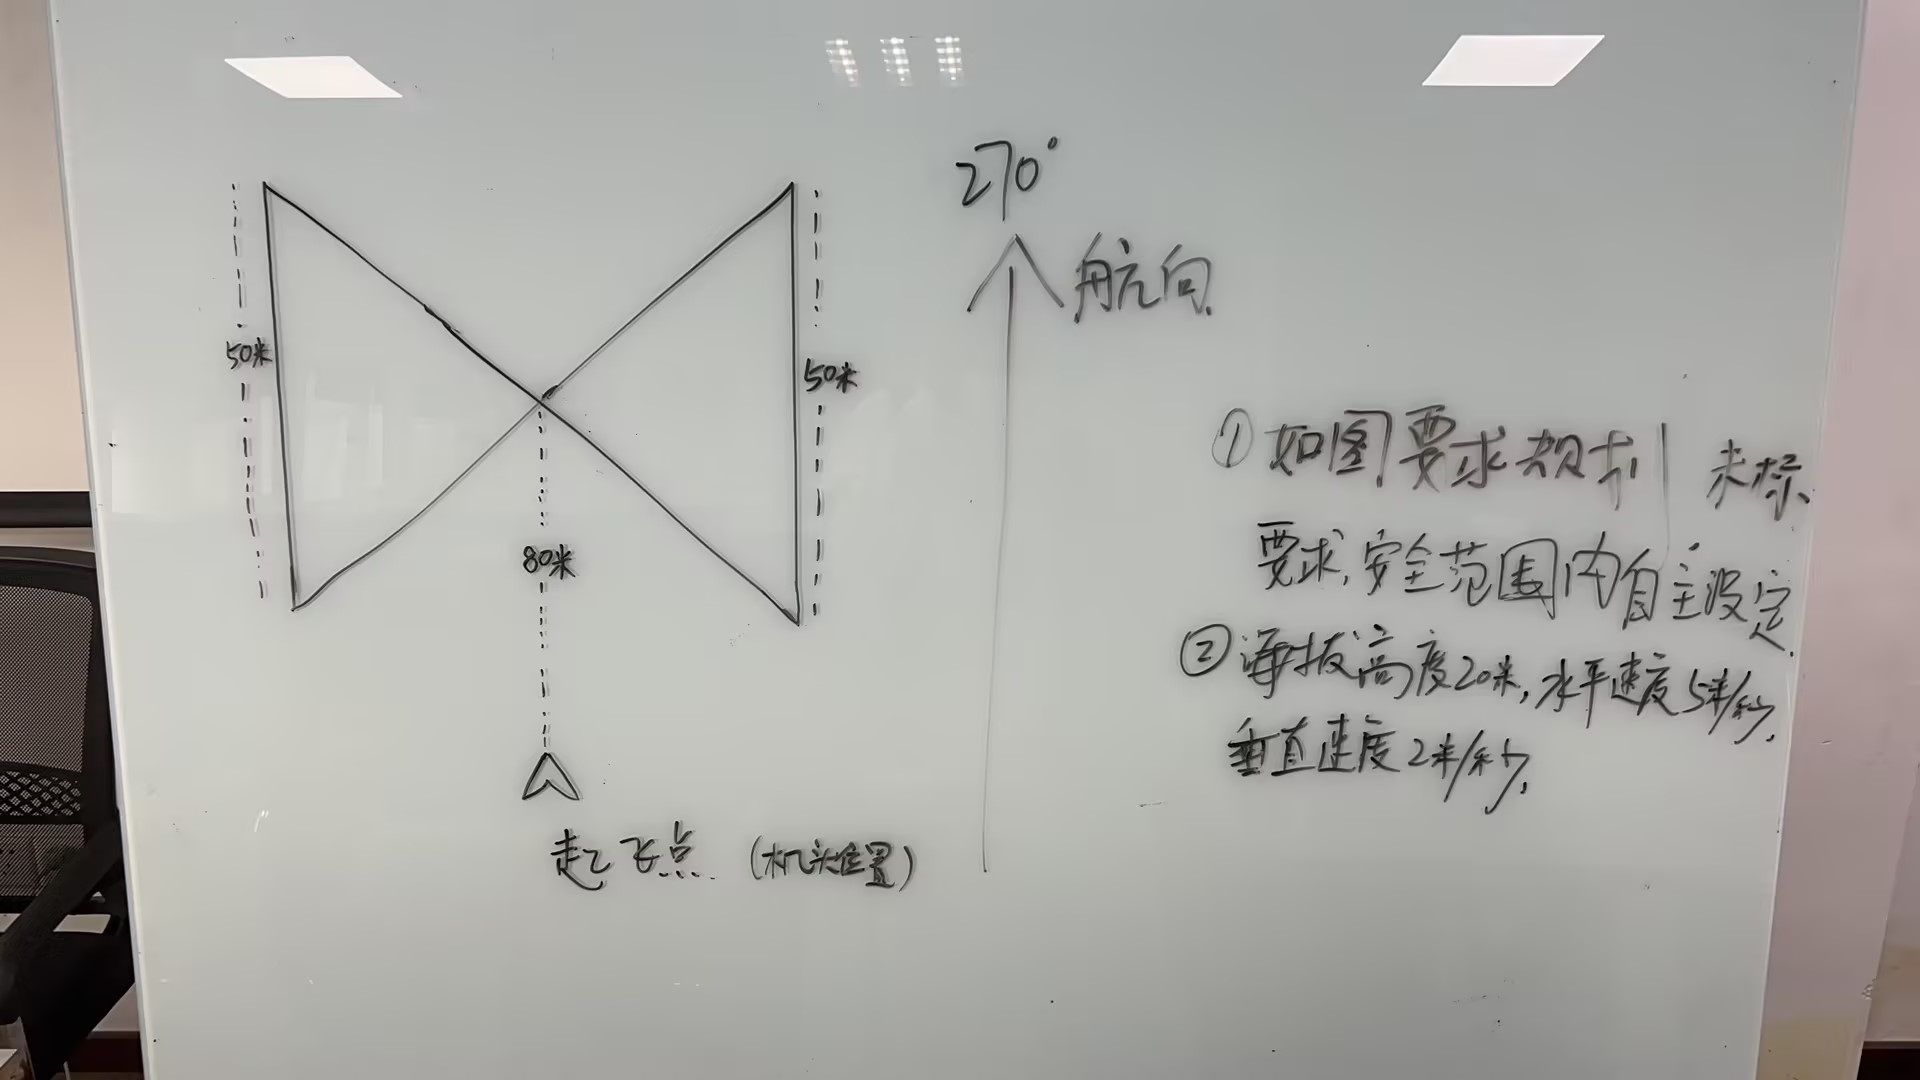 270°
航向
50米
50米
80米
起飞点 (机头位置)
① 如图要求规划 未标
要求,安全范围内自主设定.
② 海拔高度20米,水平速度5米/秒,
垂直速度2米/秒,